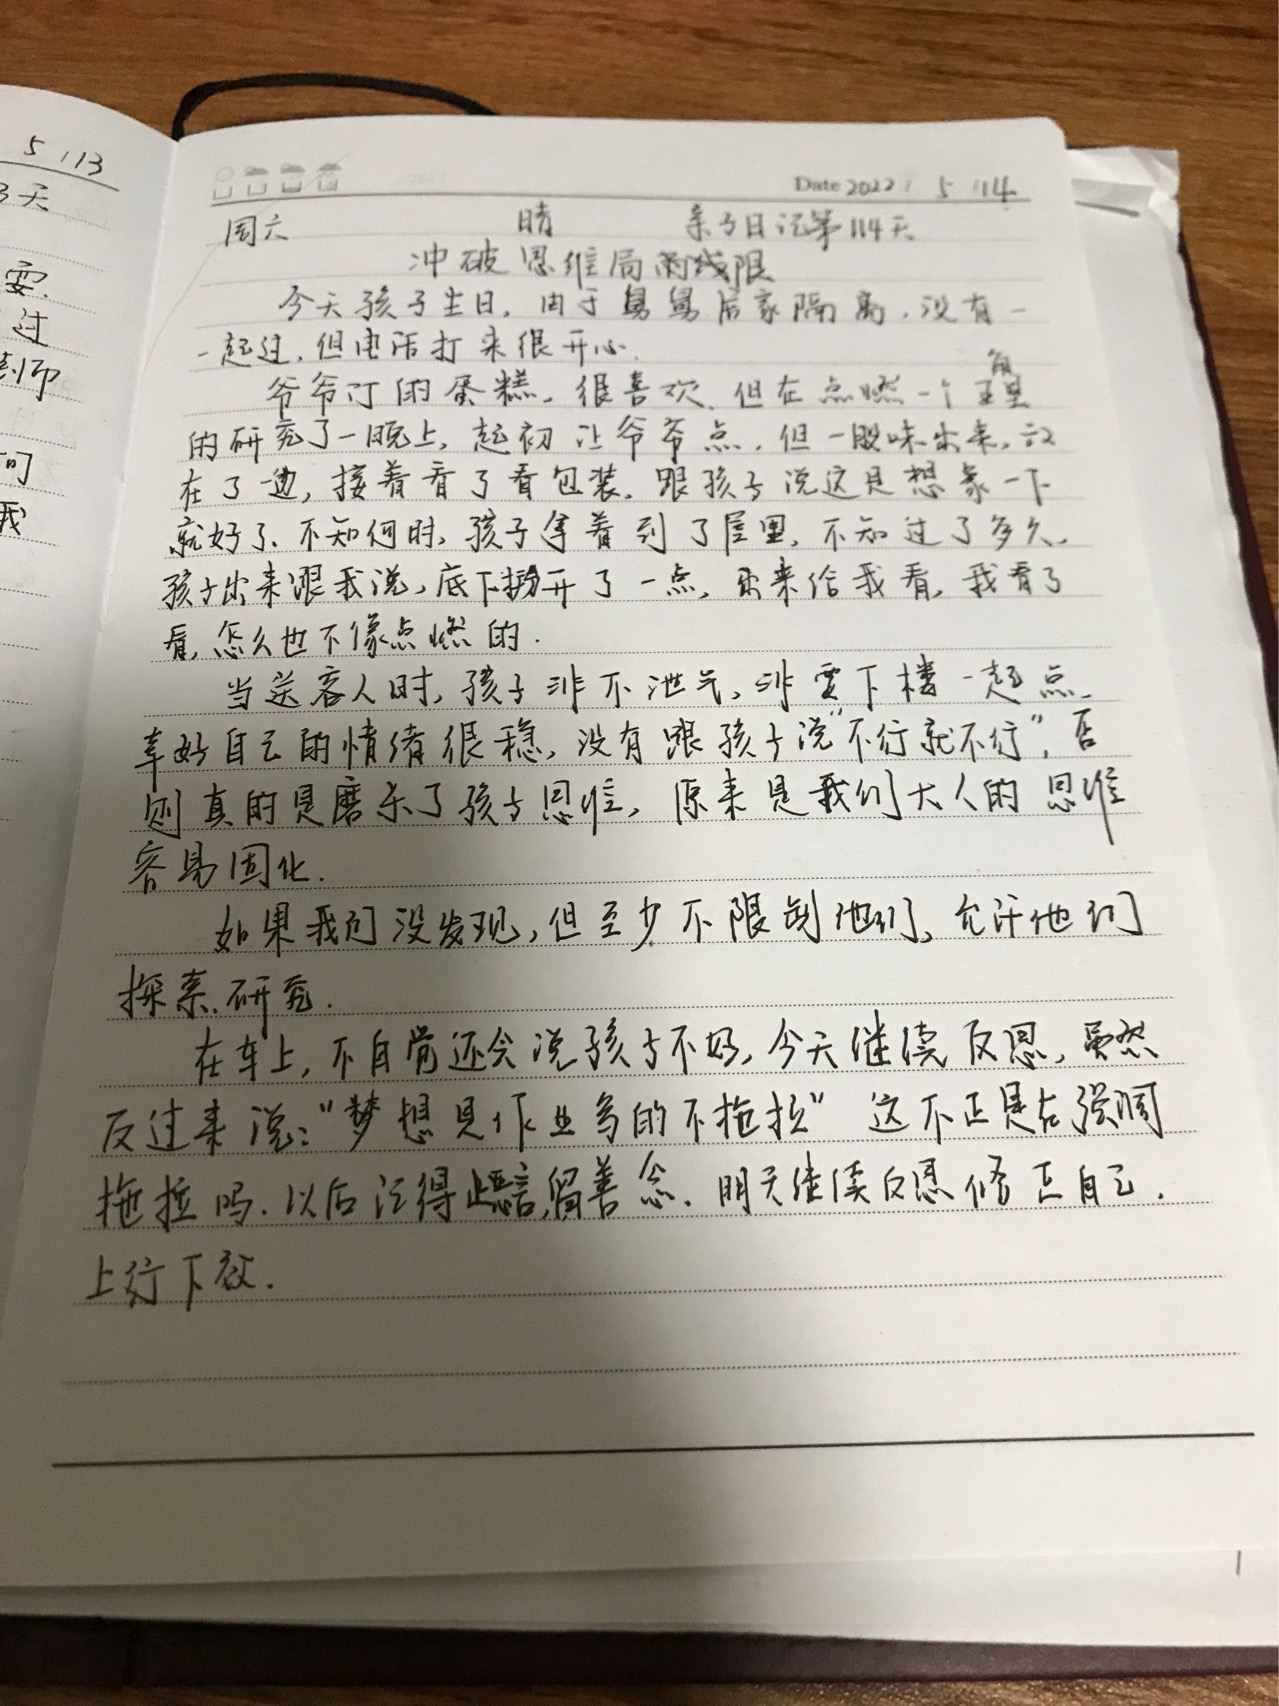 5 / 13
3天
要.
过
老师
问
我
Date 2022 / 5 / 14
周六 晴 亲子日记第114天
冲破思维局的线限
今天孩子生日,由于舅舅居家隔离,没有一
一起过,但电话打来很开心.
爷爷订的蛋糕,很喜欢,但在点燃一个
的研究了一晚上,起初让爷爷点,但一股味出来,
在了一边,接着看了看包装,跟孩子说这是想象一下
就好了、不知何时,孩子拿着到了屋里,不知过了多久,
孩子出来跟我说,底下掰开了一点,出来给我看,我看了
看,怎么也不像点燃的.
当送客人时,孩子非不泄气,非要下楼一起点,
幸好自己的情绪很稳,没有跟孩子说“不行就不行”,否
则真的是磨灭了孩子思维,原来是我们大人的思维
容易固化.
如果我们没发现,但至少不限制他们,允许他们
探索、研究.
在车上,不自觉还会说孩子不好,今天继续反思,虽然
反过来说:“梦想是作业多的不拖拉”这不正是在强调
拖拉吗.以后记得止恶言,留善念、明天继续反思修正自己.
上行下效.